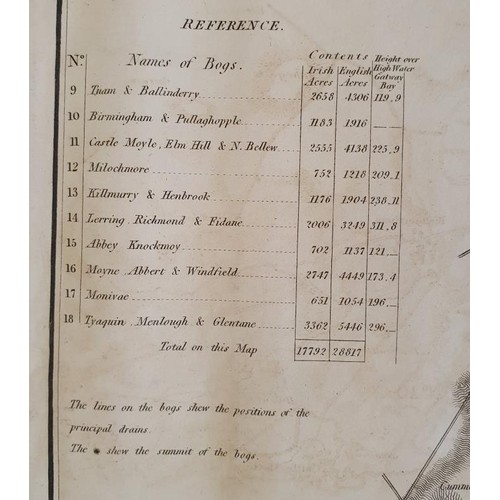 REFERENCE.
No. Names of Bogs. Contents Height over High Water Galway Bay
Irish Acres English Acres
9 Tuam & Ballinderry 2658 4306 119.9
10 Birmingham & Pullaghopple 1183 1916 —
11 Castle Moyle, Elm Hill & N. Bellew 2555 4138 225.9
12 Milochmore 752 1218 209.1
13 Killmurry & Henbrook 1176 1904 238.11
14 Lerring Richmond & Fidane 2006 3249 311.8
15 Abbey Knockmoy 702 1137 121 —
16 Moyne Abbert & Windfield 2747 4449 173.4
17 Monivae 651 1054 196 —
18 Tyaquin Menlough & Glentane 3362 5446 296 —
Total on this Map 17792 28817
The lines on the bogs shew the positions of the
principal drains.
The shew the summit of the bogs.